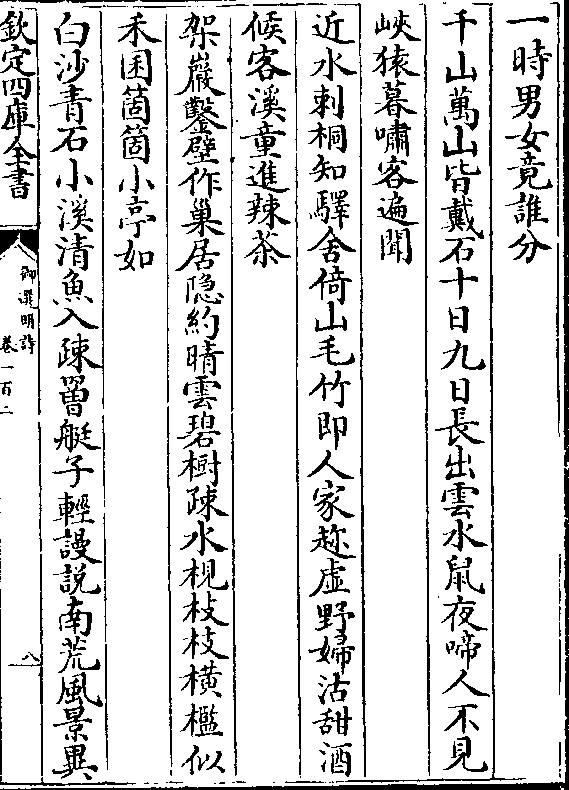 一時男女竟誰分
千山萬山皆戴石十日九日長出雲水鼠夜啼人不見
峽猿暮嘯客遍聞
近水刺桐知驛舍倚山毛竹即人家趂虛野婦沽甜酒
候客溪童進辣茶
架巖鑿壁作巢居隐約晴雲碧樹疎水梘枝枝横檻似
禾囷箇箇小亭如
白沙青石小溪清魚入疎罾艇子輕謾説南荒風景異
欽定四庫全書
御選明詩
卷一百二
八